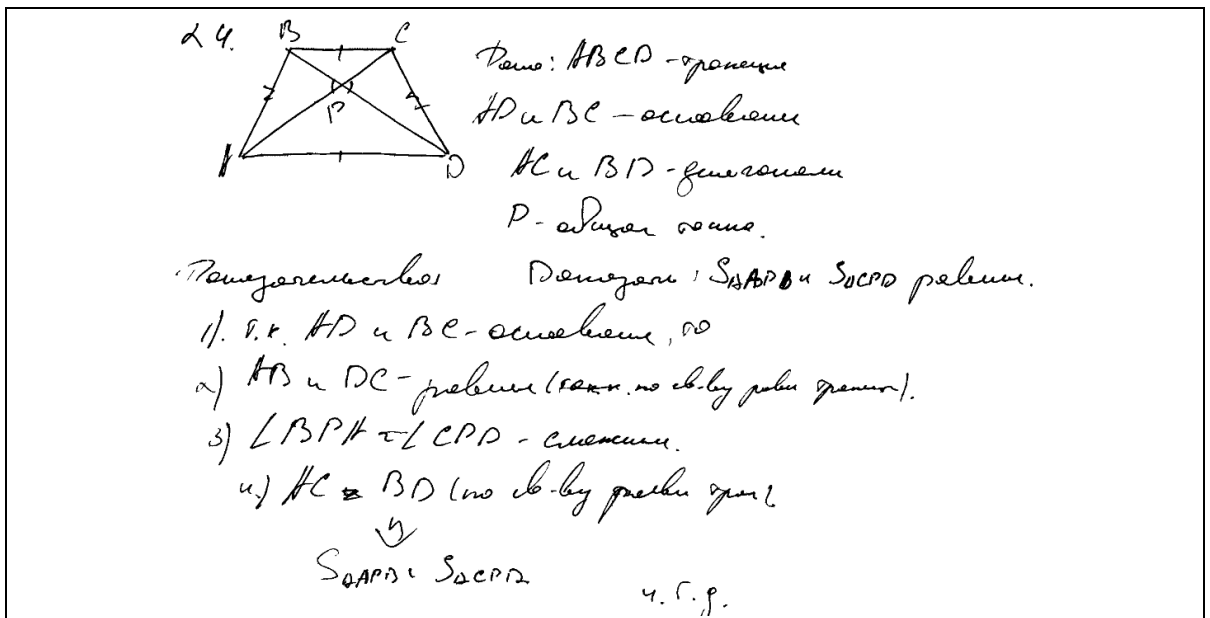 24.
B C
P
A D
Дано: ABCD - трапеция
AD и BC - основания
AC и BD - диагонали
P - общая точка.
Доказательство Доказать: S△APB и S△CPD равны.
1). т.к. AD и BC - основания, то
2) AB и DC - равны ( по св-ву равн трапец).
3) ∠BPA = ∠CPD - смежные.
4.) AC = BD (по св-ву равн трап
S△APB = S△CPD
ч.т.д.